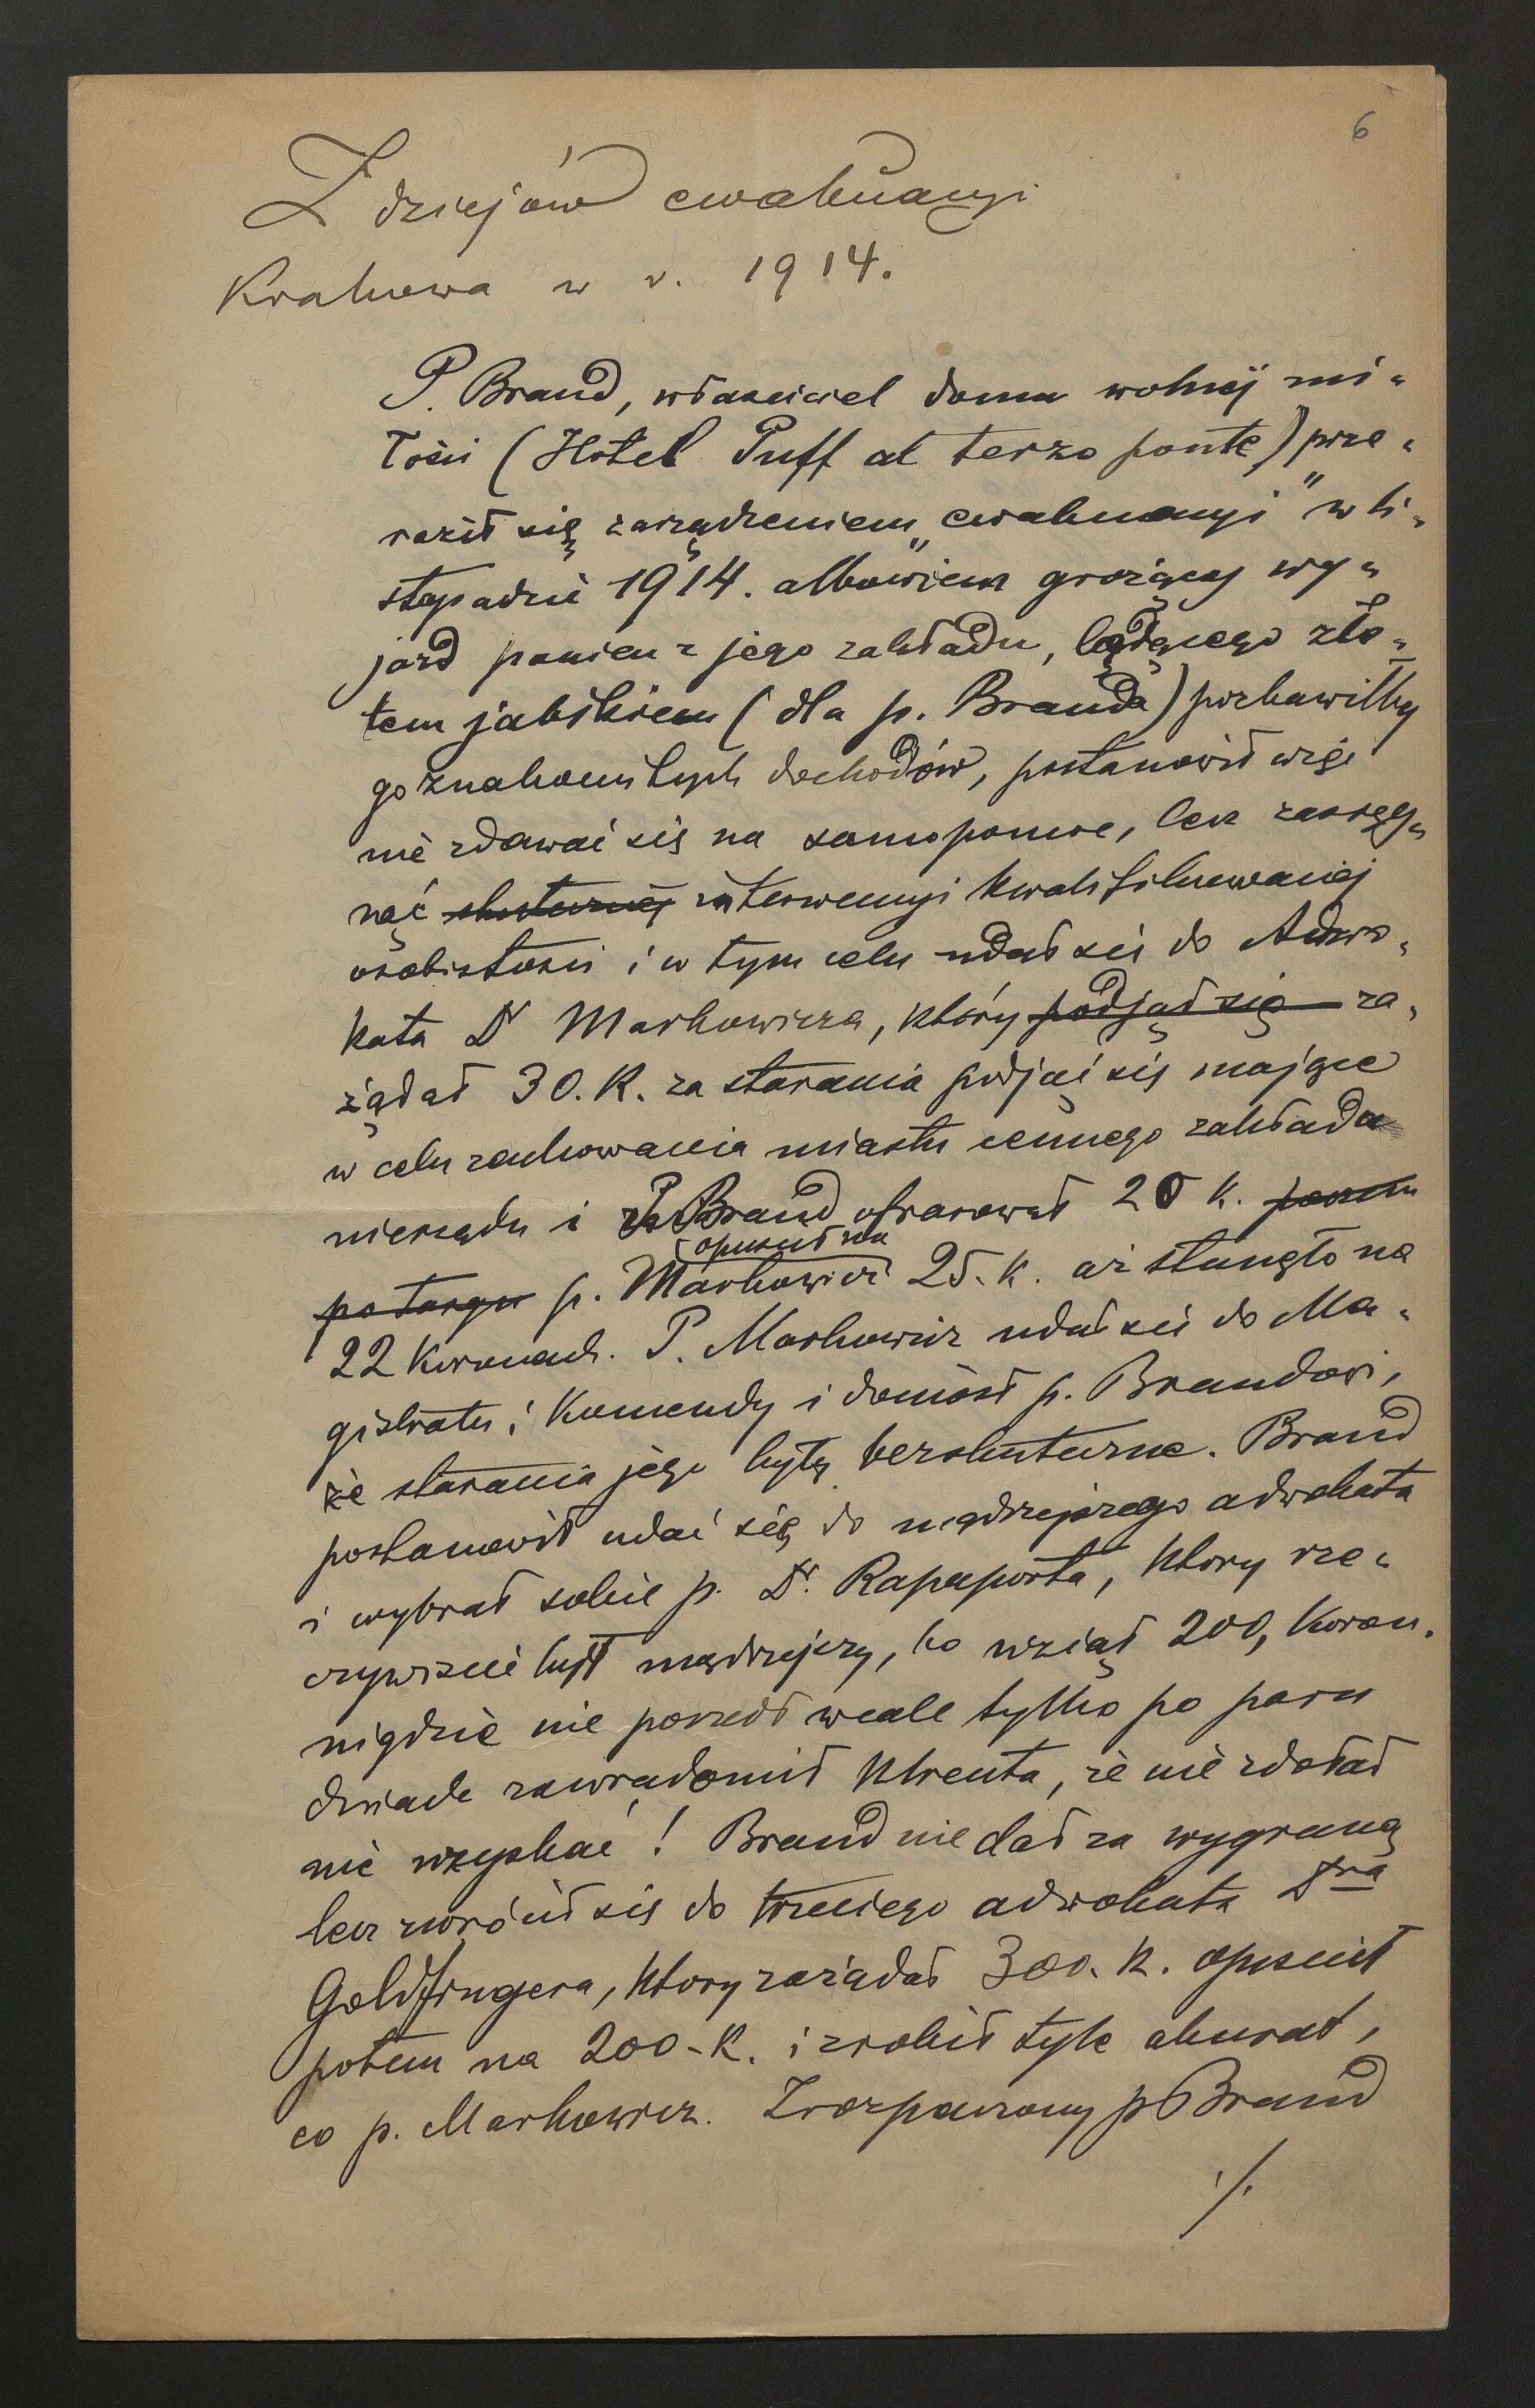 6
Z dziejów ewakuacyi
Krakowa w r. 1914.
P. Brand, właściciel domu wolnej mi-
łości (Hotel Puff al terzo ponte) prze-
raził się zarządzeniem „ewakuacyi" w li-
stopadzie 1914. albowiem grożący wy-
jazd panien z jego zakładu, będącego zło-
tem jabłkiem (dla p. Branda) pozbawiłby
go znakomitych dochodów, postanowił więc
nie zdawać się na samopomoc, lecz zasięg-
nąć skutecznej interwencyi kwalifikowanej
osobistości i w tym celu udał się do Adwo-
kata Dr Markowicza, który podjął się za-
żądał 30. K. za starania podjąć się mające
w celu zachowania miastu cennego zakładu
nierządu i P. Brand ofiarował 20 K. potem
opuścił na
po targu p. Markowicz 25. K. aż stanęło na
22 Koronach. P. Markowicz udał się do Ma-
gistratu i Komendy i doniósł p. Brandowi,
że starania jego były bezskuteczne. Brand
postanowił udać się do mądrzejszego adwokata
i wybrał sobie p. Dr. Rapaporta, który rze-
czywiście był mądrzejszy, bo wziął 200, Koron.
nigdzie nie poszedł wcale tylko po paru
dniach zawiadomił klienta, że nie zdołał
nic uzyskać! Brand nie dał za wygraną
lecz zwrócił się do trzeciego adwokata Dra
Goldfingera, który zażądał 300. K. opuścił
potem na 200-K. i zrobił tyle akurat,
co p. Markowicz. Zrozpaczony p Brand
./.